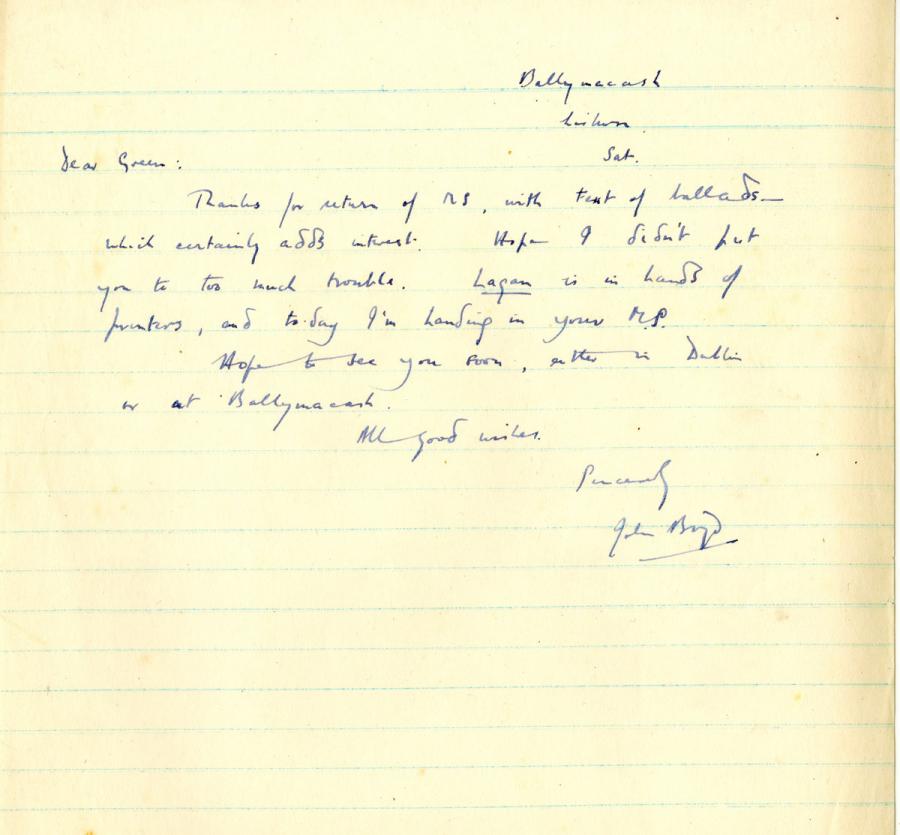 Ballymacash
Lisburn.
Sat.
Dear Green:
Thanks for return of MS, with text of ballads—
which certainly adds interest. Hope I didn't put
you to too much trouble. Lagan is in hands of
printers, and to-day I'm handing in your MS.
Hope to see you soon, either in Dublin
or at Ballymacash.
All good wishes.
Sincerely
John Boyd